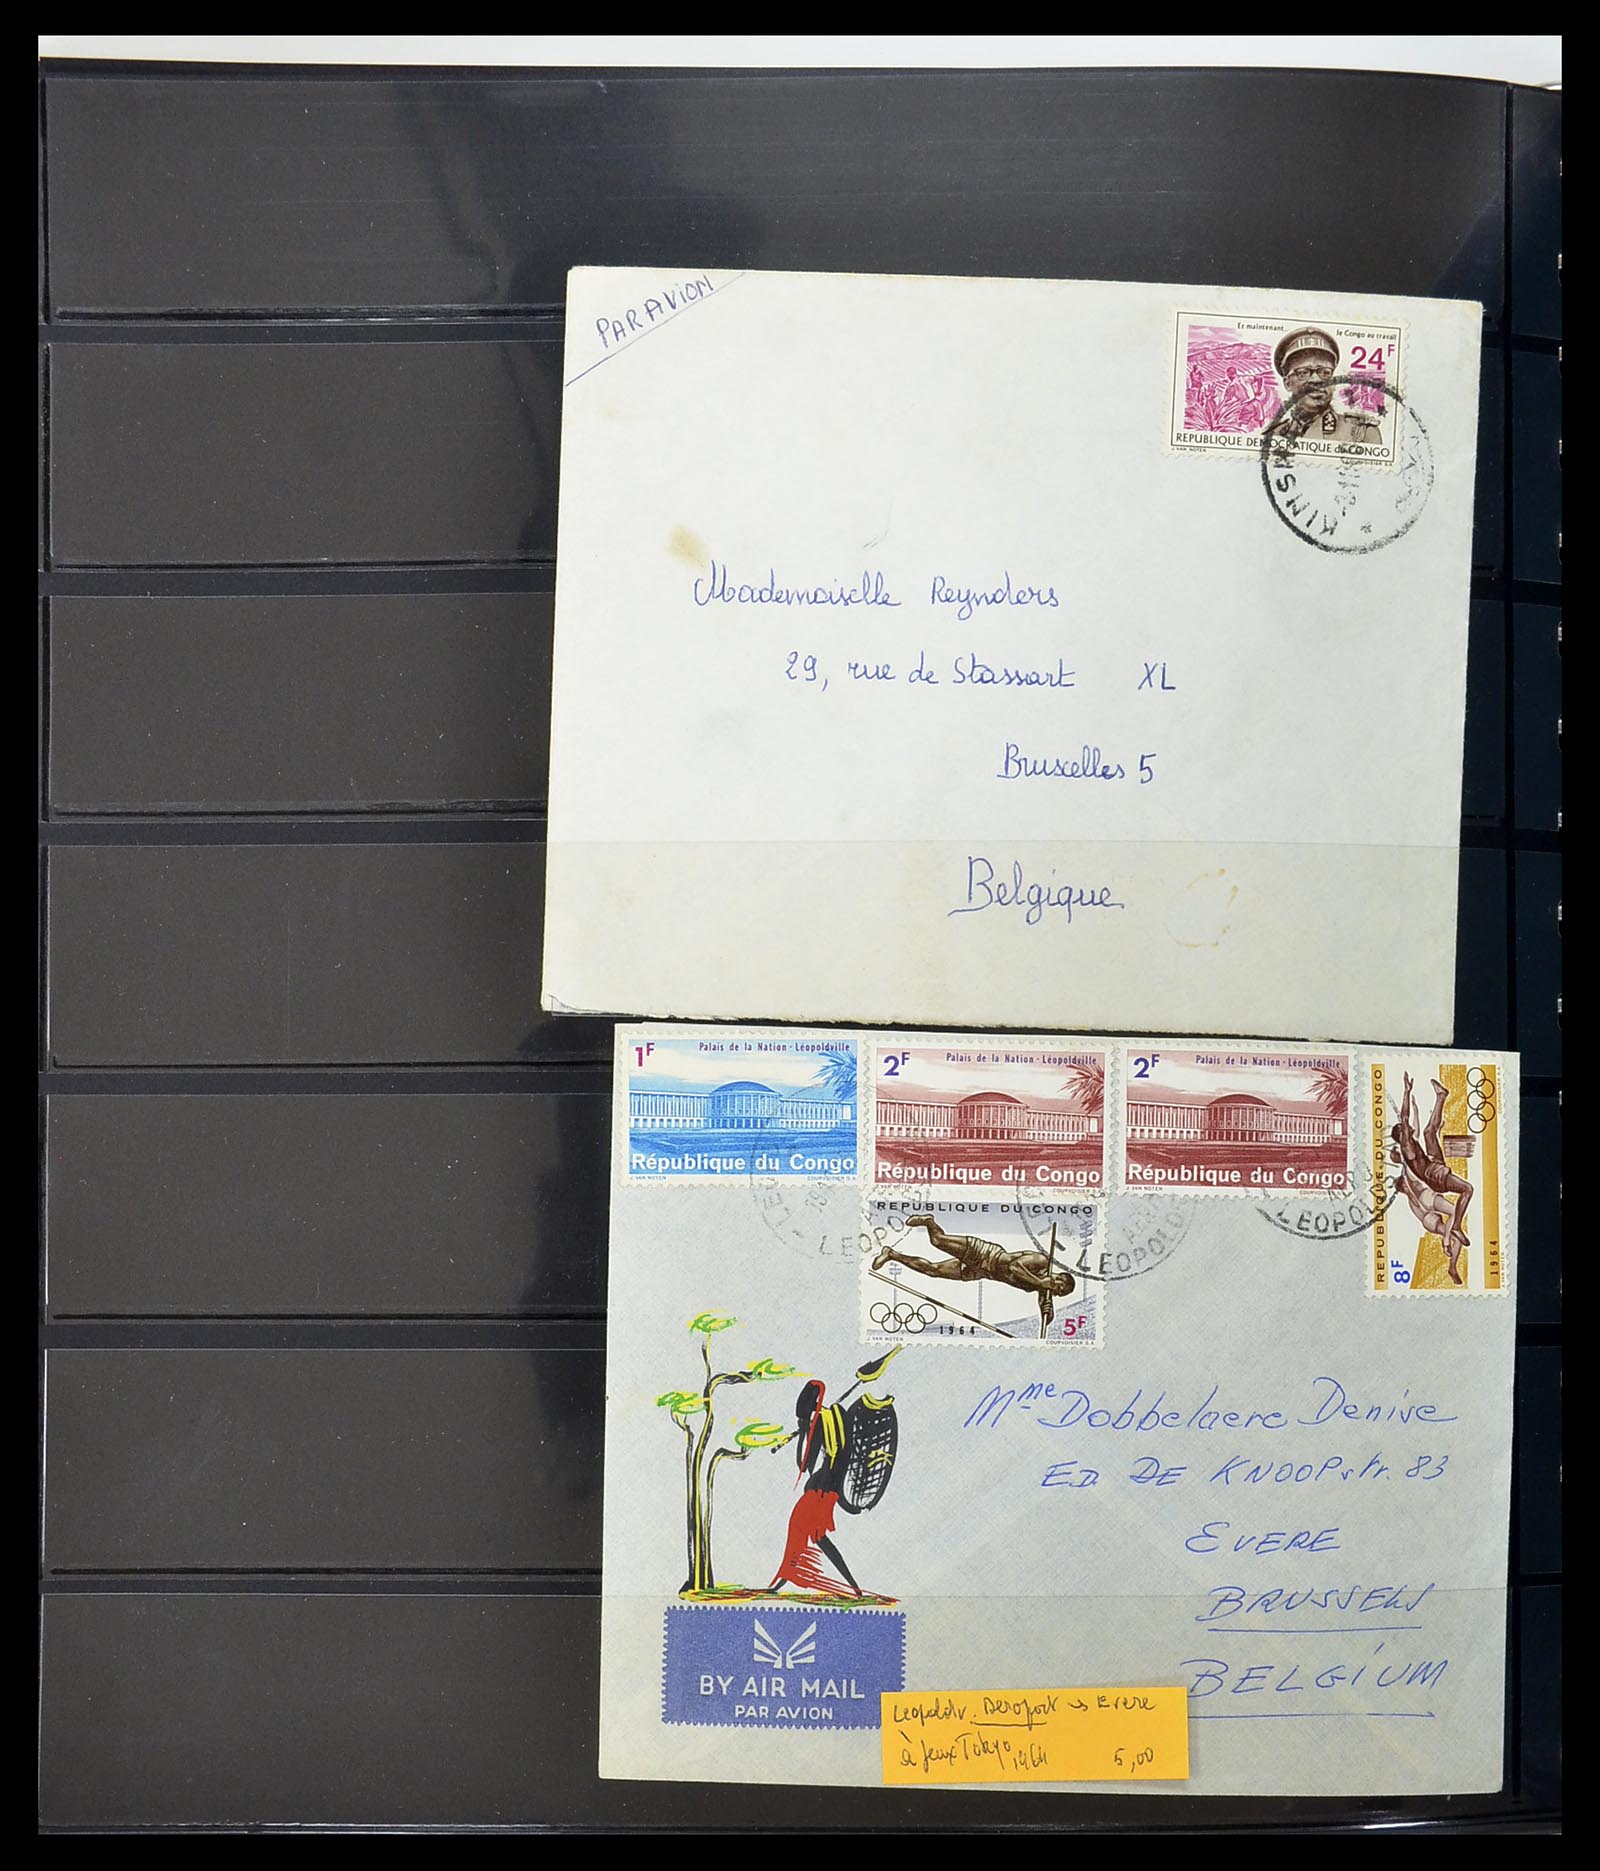 PAR AVION
Et maintenant... le Congo au travail
24F
REPUBLIQUE DEMOCRATIQUE du CONGO
J. VAN NOTEN COURVOISIER S.A.
KINSHASA
Mademoiselle Reynders
29, rue de Stassart XL
Bruxelles 5
Belgique
1F Palais de la Nation - Léopoldville
République du Congo
J. VAN NOTEN COURVOISIER S.A.
2F Palais de la Nation - Léopoldville
République du Congo
J. VAN NOTEN COURVOISIER S.A.
2F Palais de la Nation - Léopoldville
République du Congo
J. VAN NOTEN COURVOISIER S.A.
REPUBLIQUE DU CONGO
8F 1964
REPUBLIQUE DU CONGO
1964 5F
J. VAN NOTEN COURVOISIER S.A.
Mme Dobbelaere Denise
ED. DE KNOOPstr. 83
EVERE
BRUSSELS
BELGIUM
BY AIR MAIL
PAR AVION
Leopoldv. Aeroport → Evere
à Jeux Tokyo 1964 5,00